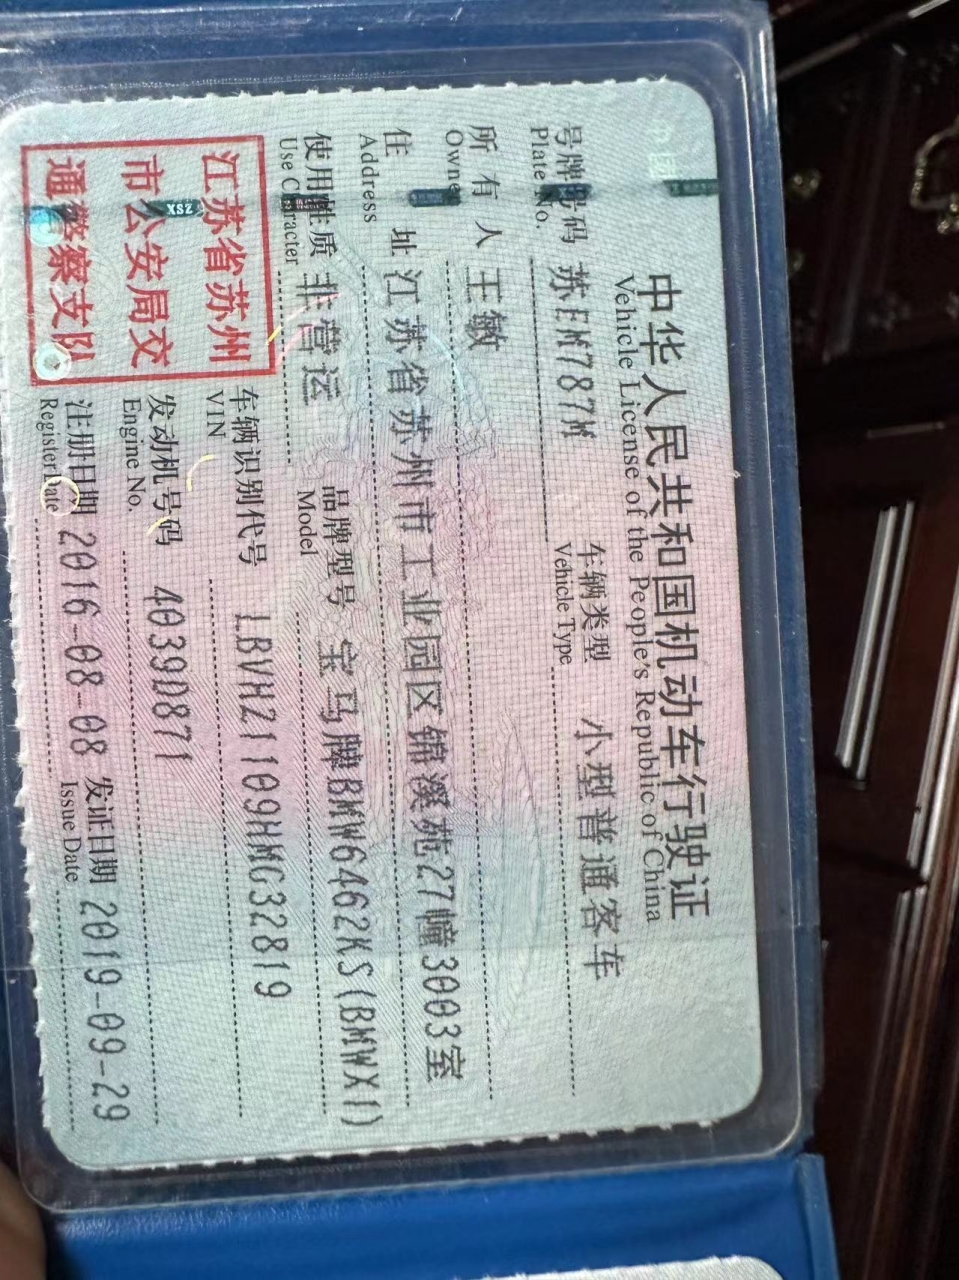 中华人民共和国机动车行驶证
Vehicle License of the People's Republic of China
号牌号码 苏EM787M 车辆类型 小型普通客车
Plate No. Vehicle Type
所有人 王敏
Owner
住址 江苏省苏州市工业园区锦溪苑27幢3003室
Address
使用性质 非营运 品牌型号 宝马牌BMW6462KS(BMWX1)
Use Character Model
江苏省苏州
市公安局交
通警察支队
XSZ
车辆识别代号 LBVHZ1109HMG32819
VIN
发动机号码 4039D871
Engine No.
注册日期 2016-08-08 发证日期 2019-09-29
Register Date Issue Date